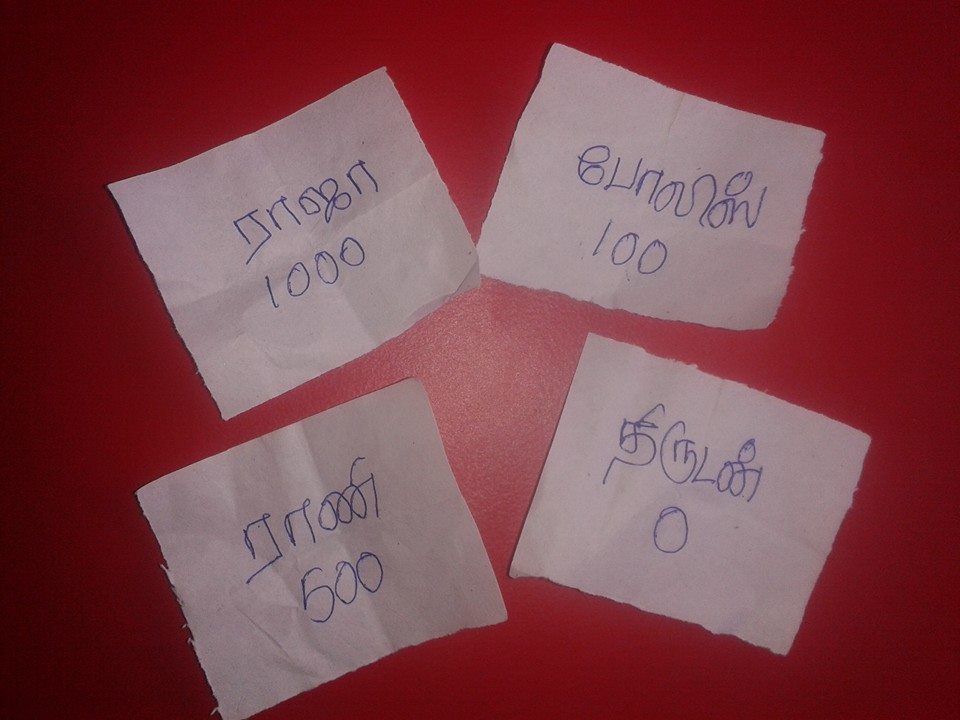 ராஜா
1000
போலிஸ்
100
ராணி
500
திருடன்
0